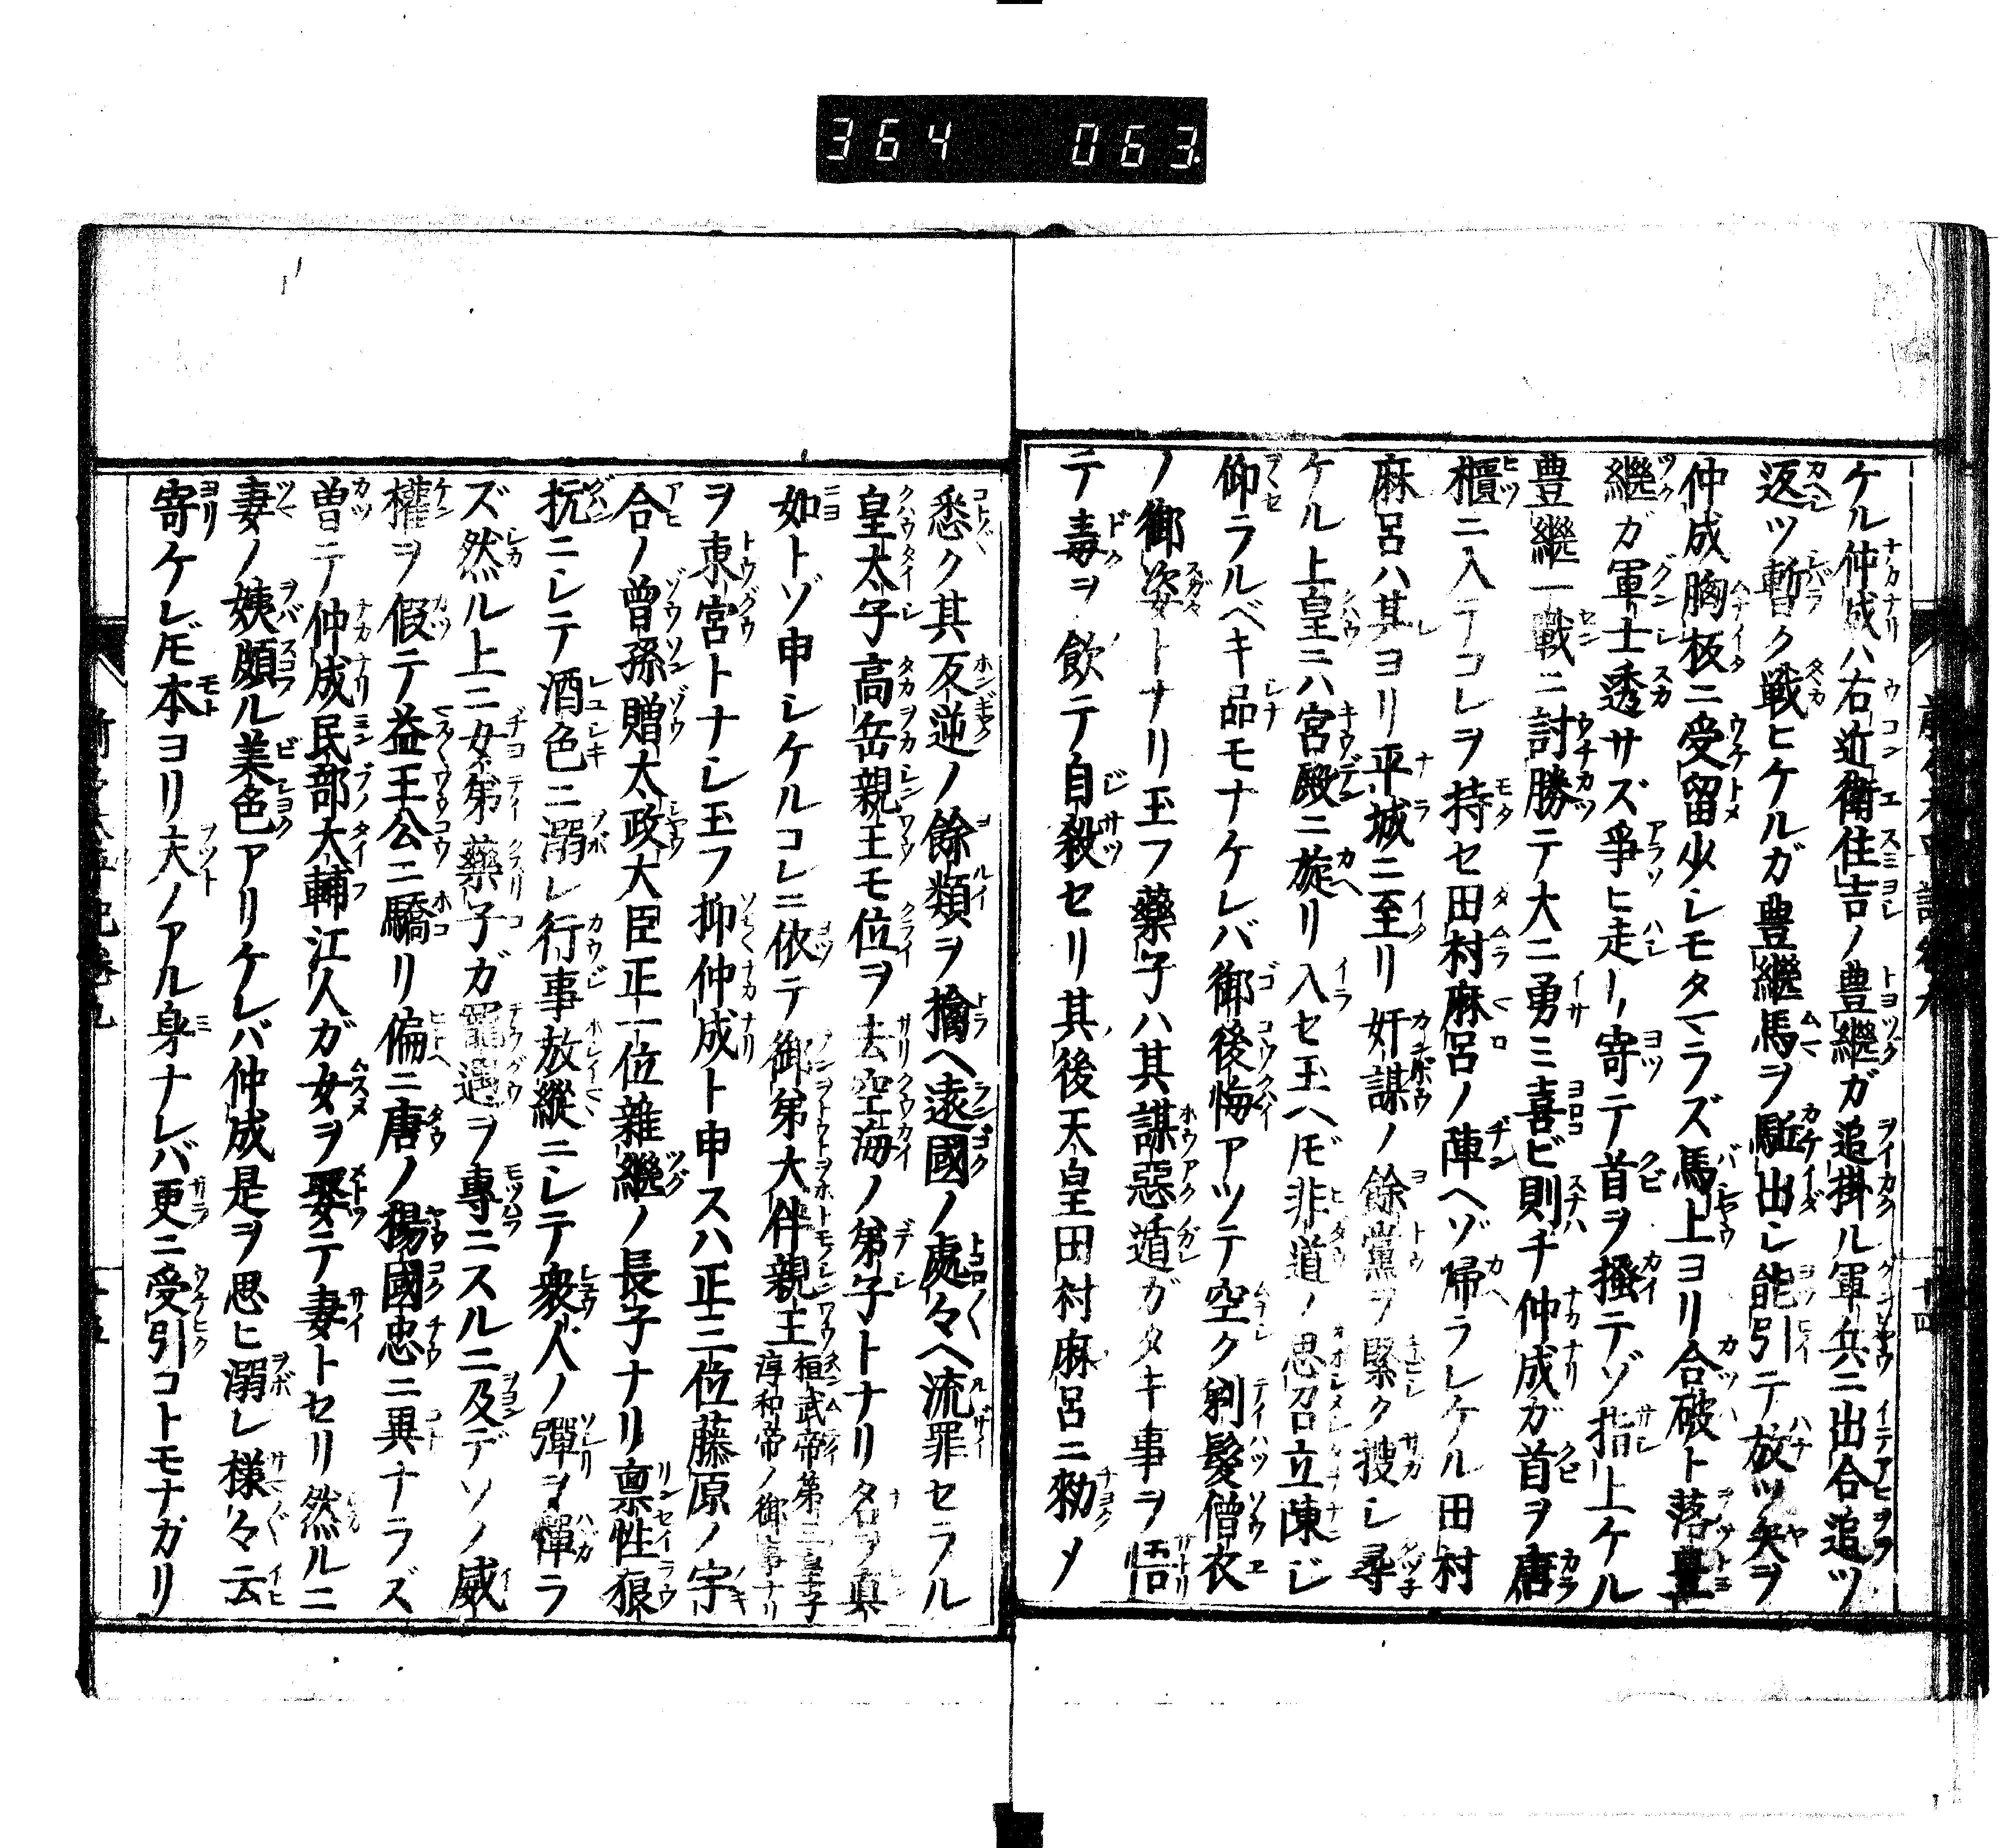 364 063
ケル仲成ハ右近衛住吉ノ豊継ガ追掛ル軍兵ニ出合追ツ
返ツ暫ク戦ヒケルガ豊継馬ヲ駈出シ能引テ放ツ矢ヲ
仲成胸板ニ受留少シモタマラズ馬上ヨリ合破ト落豊
継ガ軍士透サズ争ヒ走リ寄テ首ヲ掻テゾ指上ケル
豊継一戦ニ討勝テ大ニ勇ミ喜ビ則チ仲成ガ首ヲ唐
櫃ニ入テコレヲ持セ田村麻呂ノ陣ヘゾ帰ラレケル田村
麻呂ハ其ヨリ平城ニ至リ奸謀ノ餘黨ヲ緊ク捜シ尋
ケル上皇ニハ宮殿ニ旋リ入セ玉ヘ𪜈非道ノ思召立陳ジ
仰ラルベキ品モナケレバ御後悔アツテ空ク剃髪僧衣
ノ御姿トナリ玉フ藥子ハ其謀惡遁ガタキ事ヲ悟
テ毒ヲ飲テ自殺セリ其後天皇田村麻呂ニ勅メ
悉ク其反逆ノ餘類ヲ擒ヘ遠國ノ處々ヘ流罪セラル
皇太子高岳親王モ位ヲ去空海ノ弟子トナリ名ヲ真
如トゾ申シケルコレニ依テ御弟大伴親王桓武帝第三皇子淳和帝ノ御事ナリ
ヲ東宮トナシ玉フ抑仲成ト申スハ正三位藤原ノ宇
合ノ曽孫贈太政大臣正一位雜継ノ長子ナリ禀性狼
抗ニシテ酒色ニ溺レ行事放縱ニシテ衆人ノ彈ヲ憚ラ
ズ然ル上ニ女弟藥子ガ寵遇ヲ專ニスルニ及デソノ威
權ヲ假テ益王公ニ驕リ偏ニ唐ノ楊國忠ニ異ナラズ
曽テ仲成民部大輔江人ガ女ヲ娶テ妻トセリ然ルニ
妻ノ姨頗ル美色アリケレバ仲成是ヲ思ヒ溺レ様々云
寄ケレ𪜈本ヨリ夫ノアル身ナレバ更ニ受引コトモナガリ